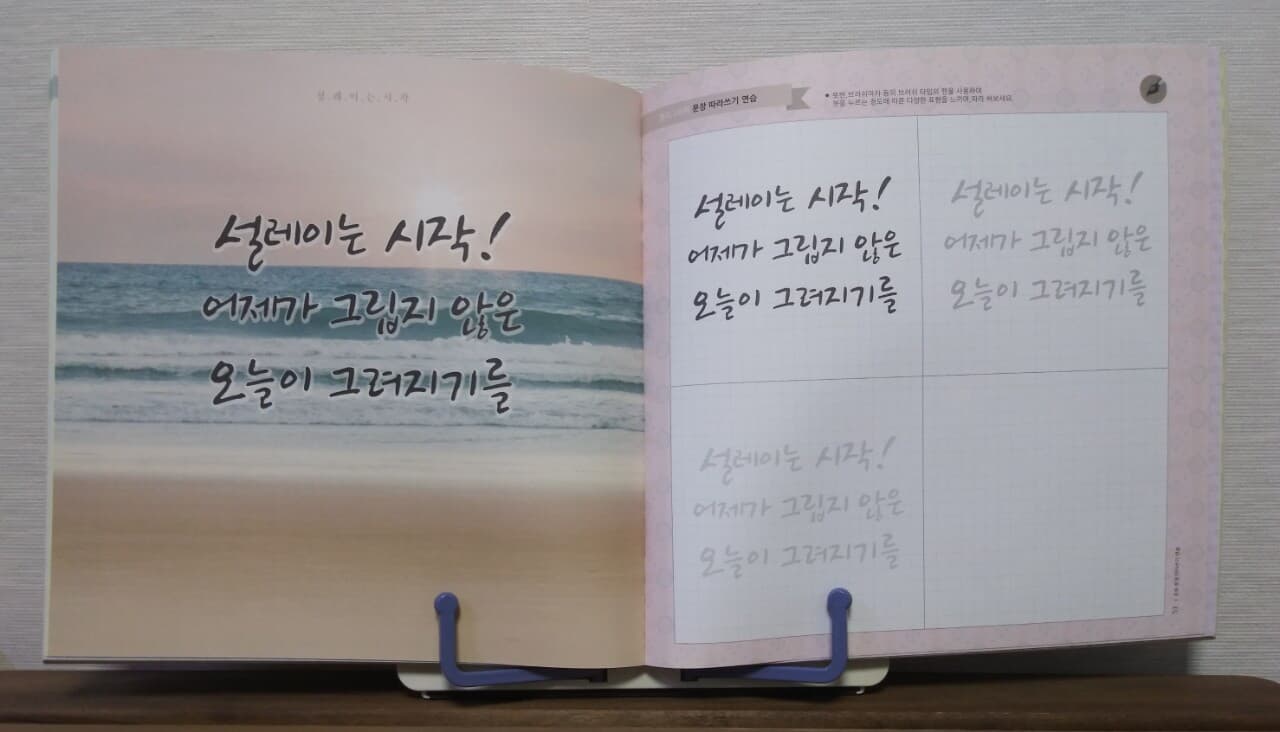 설레이는시작
설레이는 시작!
어제가 그립지 않은
오늘이 그려지기를
문장 따라쓰기 연습
• 붓펜, 브러쉬마카 등의 브러쉬 타입의 펜을 사용하여
붓을 누르는 정도에 따른 다양한 표현을 느끼며, 따라 써보세요.
설레이는 시작!
어제가 그립지 않은
오늘이 그려지기를
설레이는 시작!
어제가 그립지 않은
오늘이 그려지기를
설레이는 시작!
어제가 그립지 않은
오늘이 그려지기를